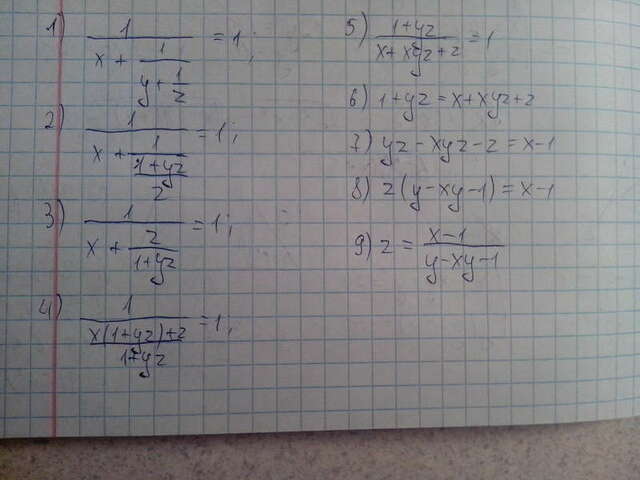 1) 1/(x + 1/(y + 1/z)) = 1;
2) 1/(x + 1/((1+yz)/z)) = 1;
3) 1/(x + z/(1+yz)) = 1;
4) 1/((x(1+yz)+z)/(1+yz)) = 1;
5) (1+yz)/(x+xyz+z) = 1
6) 1+yz = x+xyz+z
7) yz - xyz - z = x-1
8) z(y-xy-1) = x-1
9) z = (x-1)/(y-xy-1)